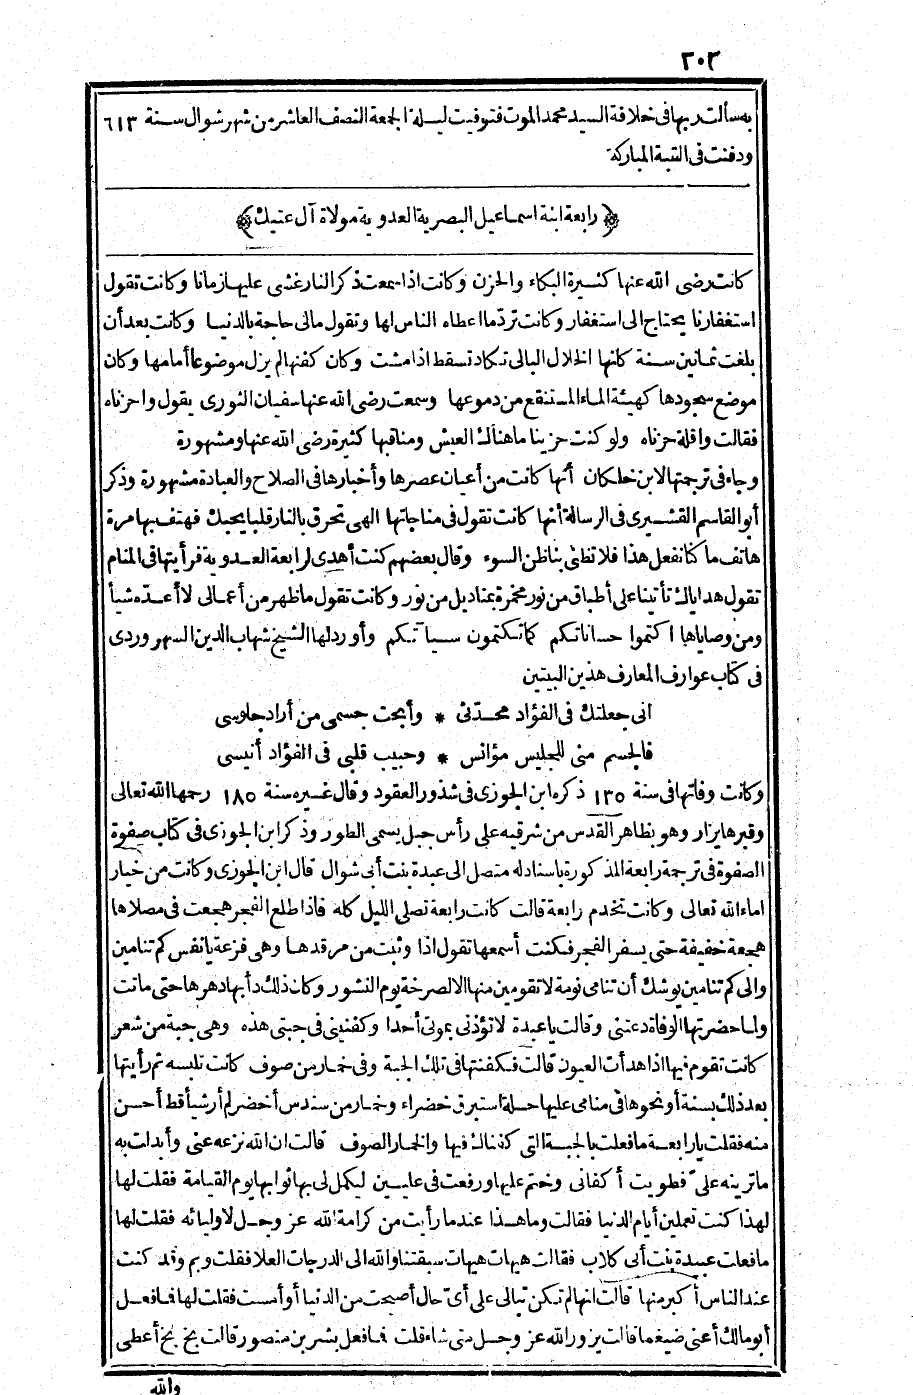 ٢٠٢
به سألت ربها فى خلافة السيد محمد الموت فتوفيت ليلة الجمعة النصف العاشر من شهر شوال سنة ٦١٣
ودفنت فى القبة المباركة
﴿رابعة ابنة اسماعيل البصرية العدوية مولاة آل عتيك﴾
كانت رضى الله عنها كثيرة البكاء والحزن وكانت اذا سمعت ذكر النار غشى عليها زمانا وكانت تقول
استغفارنا يحتاج الى استغفار وكانت تردّ ما اعطاه الناس لها وتقول مالى حاجة بالدنيا وكانت بعد أن
بلغت ثمانين سنة كأنها الخلال البالى تكاد تسقط اذا مشت وكان كفنها لم يزل موضوعا أمامها وكان
موضع سجودها كهيئة الماء المستنقع من دموعها وسمعت رضى الله عنها سفيان الثورى يقول واحزناه
فقالت واقلة حزناه ولو كنت حزينا ما هناك العيش ومناقبها كثيرة رضى الله عنها ومشهورة
وجاء فى ترجمتها لابن خلكان أنها كانت من أعيان عصرها وأخبارها فى الصلاح والعبادة مشهورة وذكر
أبو القاسم القشيرى فى الرسالة أنها كانت تقول فى مناجاتها الهى تحرق بالنار قلبا يحبك فهتف بها مرة
هاتف ما كنا نفعل هذا فلا تظنى بنا ظن السوء وقال بعضهم كنت أهدى لرابعة العدوية فرأيتها فى المنام
تقول هداياك تأتينا على أطباق من نور مخمرة بمناديل من نور وكانت تقول ما ظهر من أعمالى لا أعدّه شيأ
ومن وصاياها اكتموا حسناتكم كما تكتمون سيآتكم وأورد لها الشيخ شهاب الدين السهروردى
فى كتاب عوارف المعارف هذين البيتين
انى جعلتك فى الفؤاد محدّثى * وأبحت جسمى من أراد جلوسى
فالجسم منى للجليس مؤانس * وحبيب قلبى فى الفؤاد أنيسى
وكانت وفاتها فى سنة ١٣٥ ذكره ابن الجوزى فى شذور العقود وقال غيره سنة ١٨٥ رحمها الله تعالى
وقبرها يزار وهو بظاهر القدس من شرقيه على رأس جبل يسمى الطور وذكر ابن الجوزى فى كتاب صفوة
الصفوة فى ترجمة رابعة المذكورة باسناد له متصل الى عبدة بنت أبى شوال قال ابن الجوزى وكانت من خيار
اماء الله تعالى وكانت تخدم رابعة قالت كانت رابعة تصلى الليل كله فاذا طلع الفجر هجعت فى مصلاها
هجعة خفيفة حتى يسفر الفجر فكنت أسمعها تقول اذا وثبت من مرقدها وهى فزعة يا نفس كم تنامين
والى كم تنامين يوشك أن تنامى نومة لا تقومين منها الا لصرخة يوم النشور وكان ذلك دأبها دهرها حتى ماتت
ولما حضرتها الوفاة دعتنى وقالت يا عبدة لا تؤذنى بموتى أحدا وكفنينى فى جبتى هذه وهى جبة من شعر
كانت تقوم فيها اذا هدأت العيون قالت فكفنتها فى تلك الجبة وفى خمار من صوف كانت تلبسه ثم رأيتها
بعد ذلك بسنة أو نحوها فى منامى عليها حلة استبرق خضراء وخمار من سندس أخضر لم أر شيأ قط أحسن
منه فقلت يا رابعة ما فعلت بالجبة التى كفناك فيها والخمار الصوف قالت ان الله نزعه عنى وأبدلت به
ما ترينه علىّ فطويت أكفانى وختم عليها ورفعت فى عليين ليكمل لى بها ثوابها يوم القيامة فقلت لها
لهذا كنت تعملين أيام الدنيا فقالت وما هذا عندما رأيت من كرامة الله عز وجل لاوليائه فقلت لها
ما فعلت عبيدة بنت أبى كلاب فقالت هيهات هيهات سبقتنا والله الى الدرجات العلا فقلت وبم وقد كنت
عند الناس أكبر منها قالت انها لم تكن تبالى على أى حال أصبحت من الدنيا أو أمست فقلت لها فما فعل
أبو مالك أعنى ضيغما قالت يزور الله عز وجل متى شاء قلت فما فعل بشر بن منصور قالت بخ بخ أعطى
والله